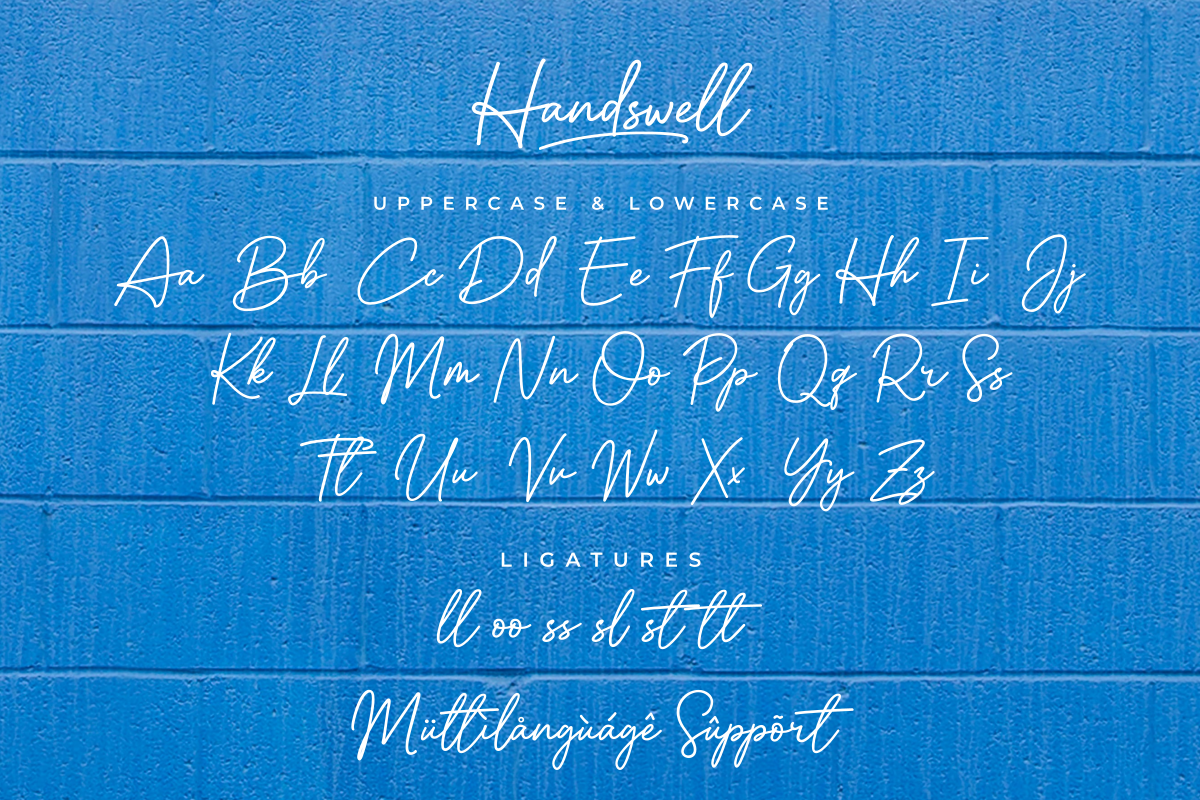 Handswell
UPPERCASE & LOWERCASE
Aa Bb Cc Dd Ee Ff Gg Hh Ii Jj
Kk Ll Mm Nn Oo Pp Qq Rr Ss
Tt Uu Vv Ww Xx Yy Zz
LIGATURES
ll oo ss sl st tt
Mültìlångùágê Sûppõrt